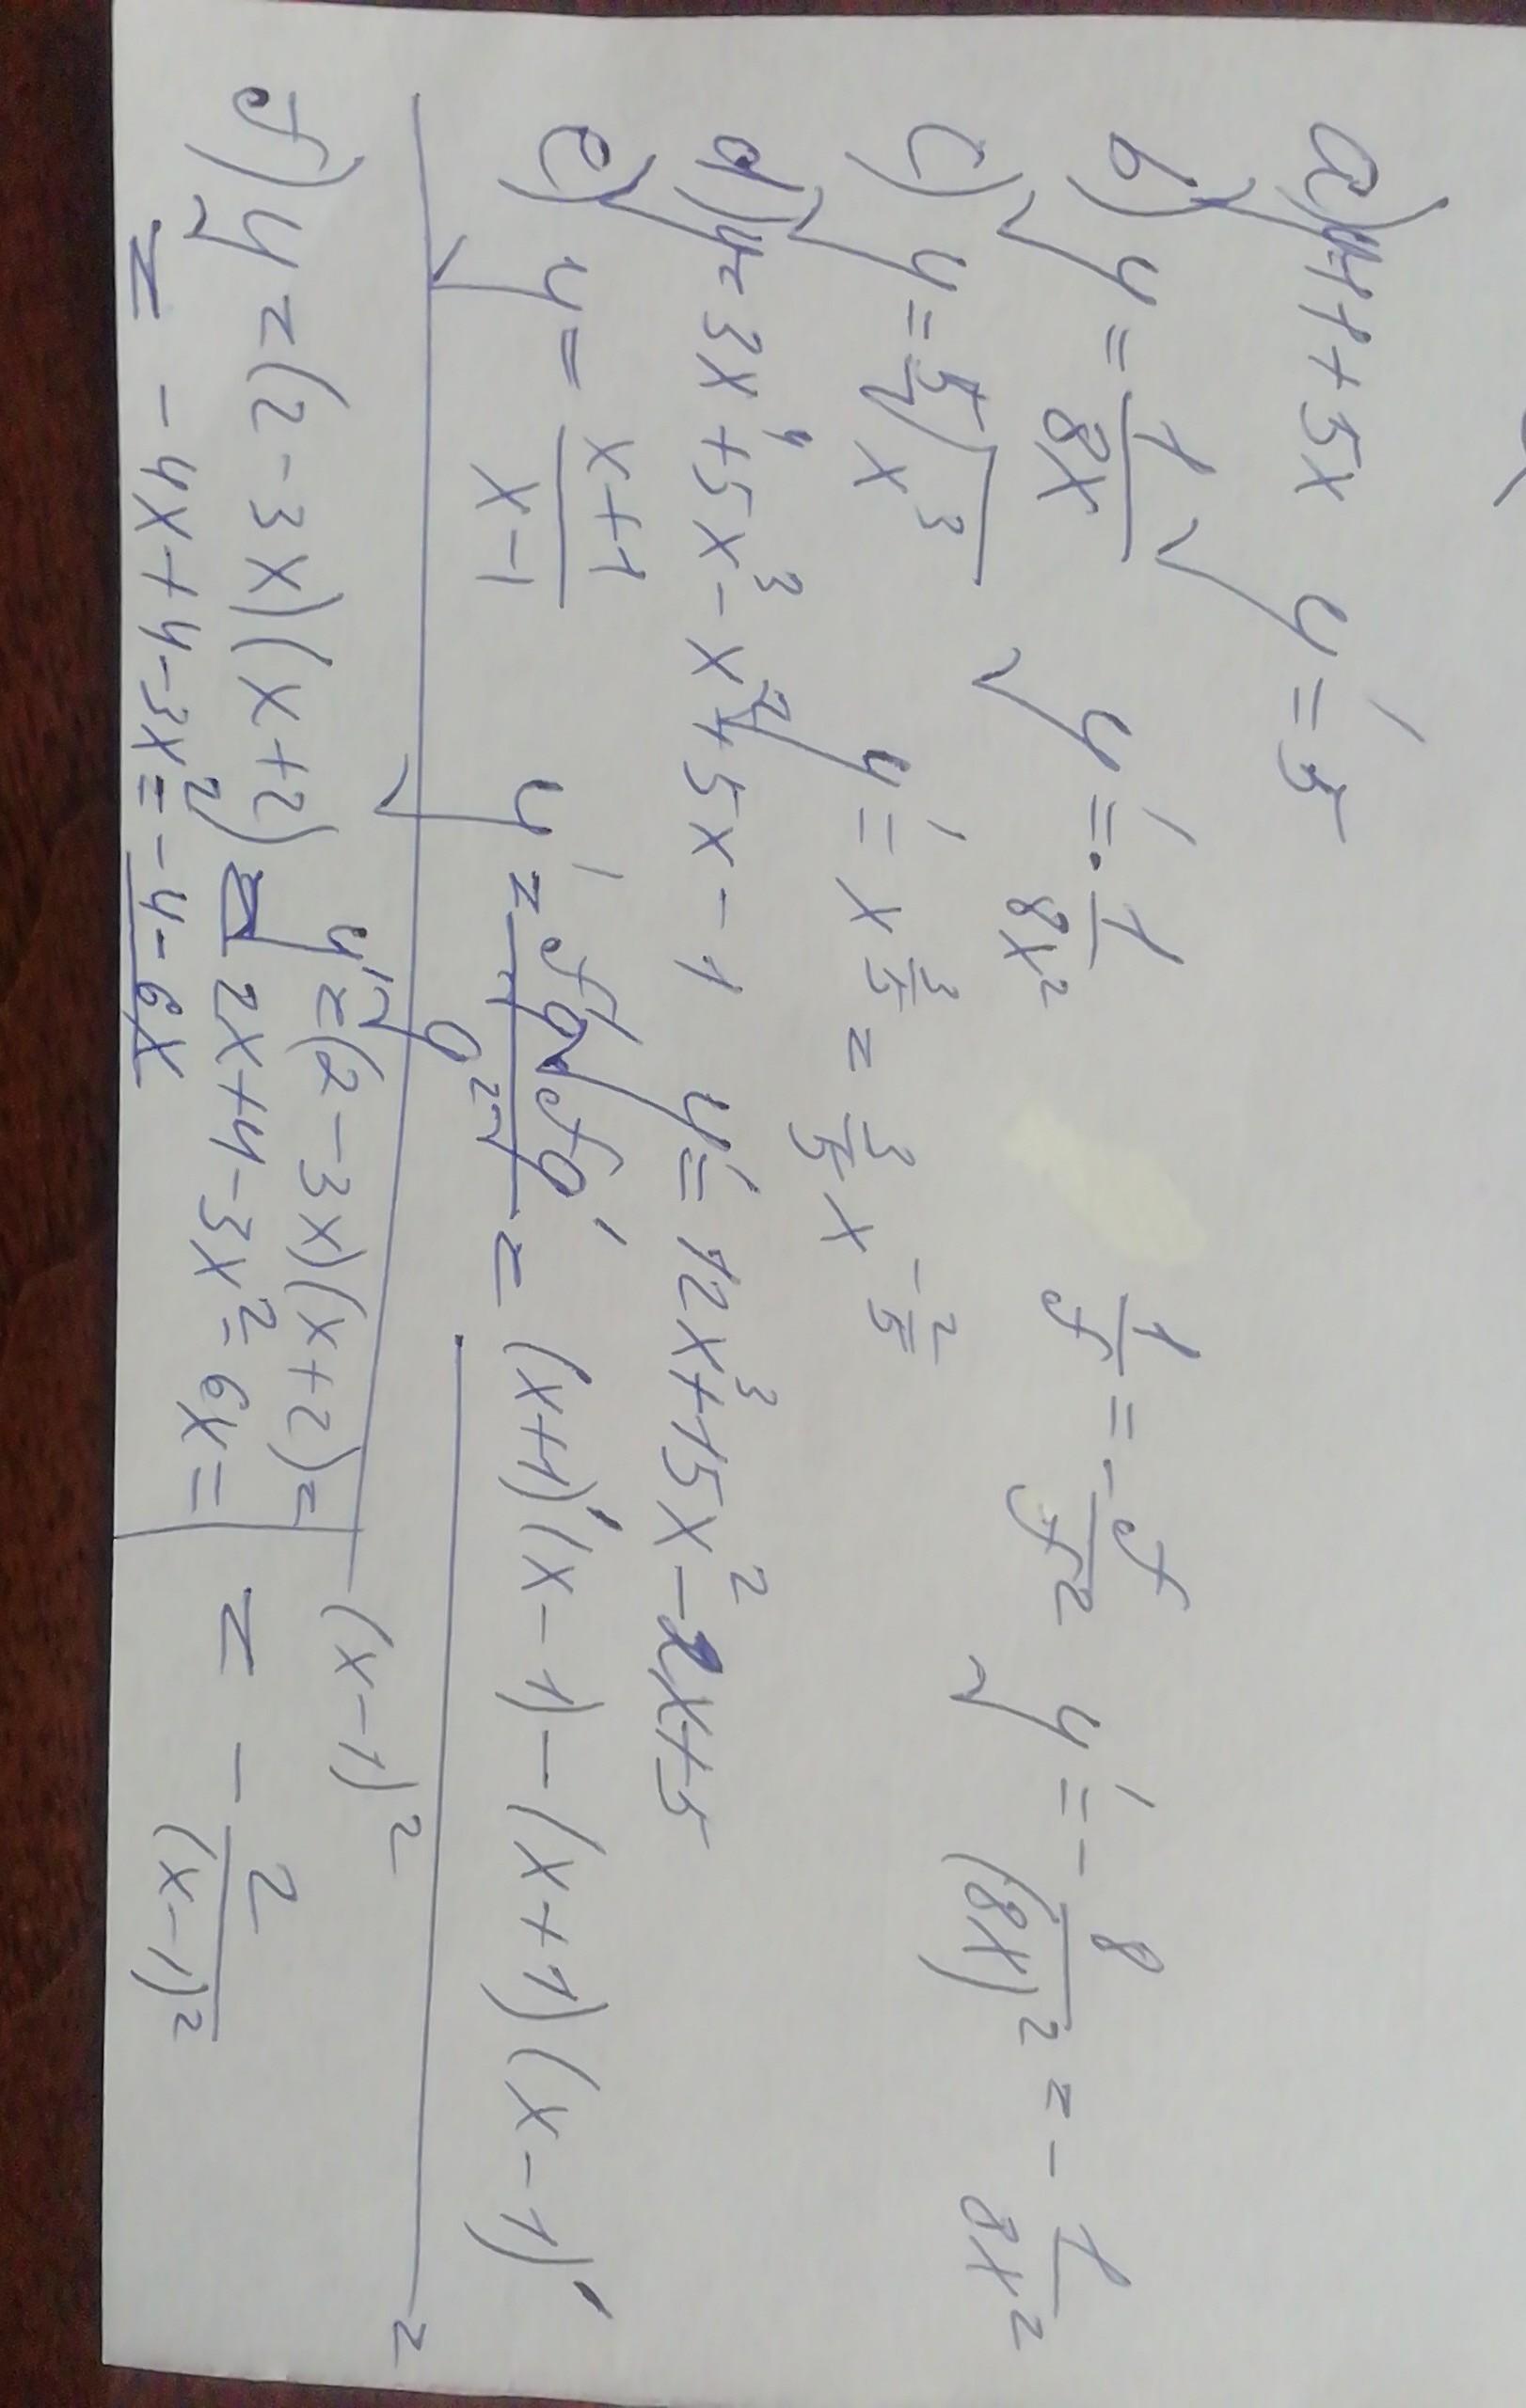 a) y=1+5x y'=5
b) y = 1/8x y'=-1/8x² 1/f = -f'/f² y'=-8/(8x)² = -1/8x²
c) y = ⁵√x³ y'= x^3/5 = 3/5 x^-2/5
d) y=3x⁴+5x³-x²+5x-1 y'=12x³+15x²-2x+5
e) y = x+1/x-1 y'= f'g-fg'/g² = (x+1)'(x-1)-(x+1)(x-1)'/(x-1)² =
= -2/(x-1)²
f) y=(2-3x)(x+2) y'=(2-3x)(x+2)=
= 2x+4-3x²-6x=
= -4x+4-3x²=-4-6x